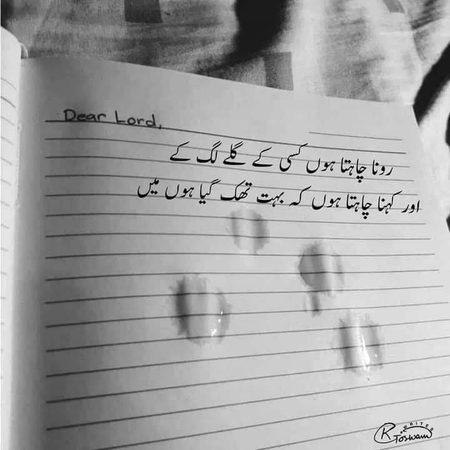 Dear Lord,
رونا چاہتا ہوں کسی کے گلے لگ کے
اور کہنا چاہتا ہوں کہ بہت تھک گیا ہوں میں
WRITER